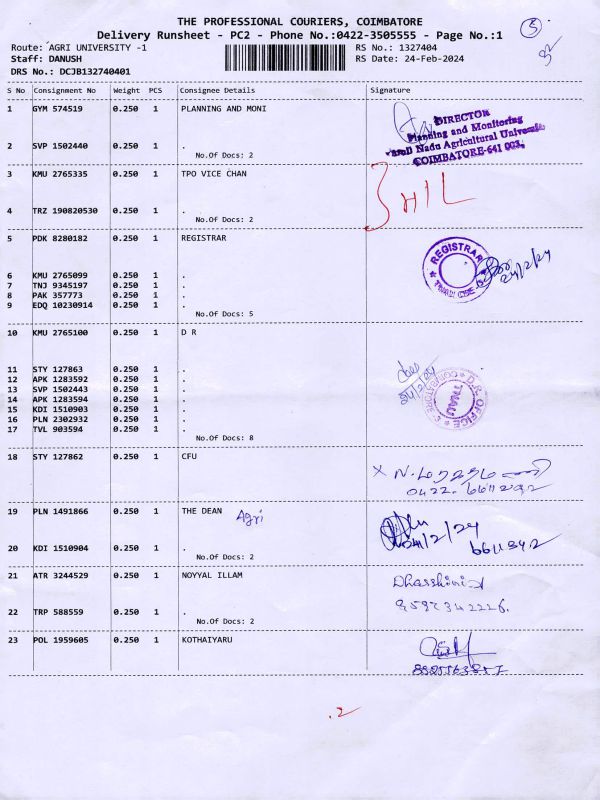 THE PROFESSIONAL COURIERS, COIMBATORE
Delivery Runsheet - PC2 - Phone No.:0422-3505555 - Page No.:1
5
Route: AGRI UNIVERSITY -1
RS No.: 1327404
Staff: DANUSH
RS Date: 24-Feb-2024
DRS No.: DCJB132740401
S No Consignment No Weight PCS Consignee Details Signature
1 GYM 574519 0.250 1 PLANNING AND MONI
DIRECTOR
Planning and Monitoring
Tamil Nadu Agricultural University
COIMBATORE-641 003.
2 SVP 1502440 0.250 1 .
No.Of Docs: 2
3 KMU 2765335 0.250 1 TPO VICE CHAN
4 TRZ 190820530 0.250 1 .
No.Of Docs: 2
5 PDK 8280182 0.250 1 REGISTRAR
REGISTRAR
24/2/24
6 KMU 2765099 0.250 1 .
7 TNJ 9345197 0.250 1 .
8 PAK 357773 0.250 1 .
9 EDQ 10230914 0.250 1 .
No.Of Docs: 5
10 KMU 2765100 0.250 1 D R
24/2/24
D.R. OFFICE
TNAU
COIMBATORE-3
11 STY 127863 0.250 1 .
12 APK 1283592 0.250 1 .
13 SVP 1502443 0.250 1 .
14 APK 1283594 0.250 1 .
15 KDI 1510903 0.250 1 .
16 PLN 2302932 0.250 1 .
17 TVL 903594 0.250 1 .
No.Of Docs: 8
18 STY 127862 0.250 1 CFU
19 PLN 1491866 0.250 1 THE DEAN Agri
24/2/24
20 KDI 1510904 0.250 1 .
No.Of Docs: 2
21 ATR 3244529 0.250 1 NOYYAL ILLAM
Dharshini
9597342226.
22 TRP 588559 0.250 1 .
No.Of Docs: 2
23 POL 1959605 0.250 1 KOTHAIYARU
.2